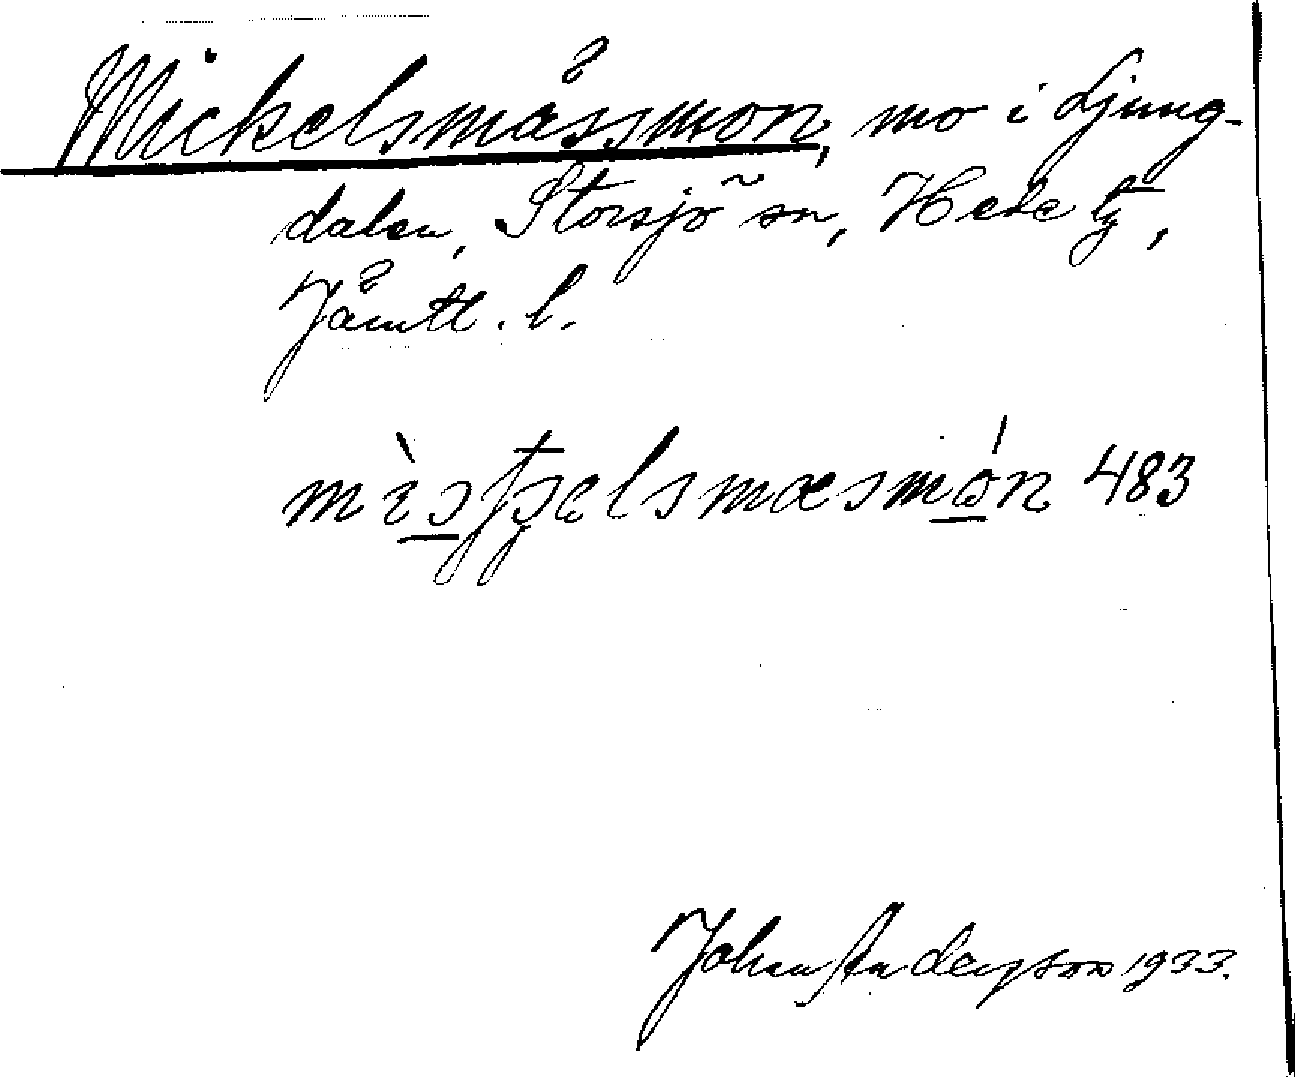 Mickelsmässmon, mo i Ljung-
dalen, Storsjö sn, Hede tg,
Jämtl. l.
483
Johan Anderson 1933.